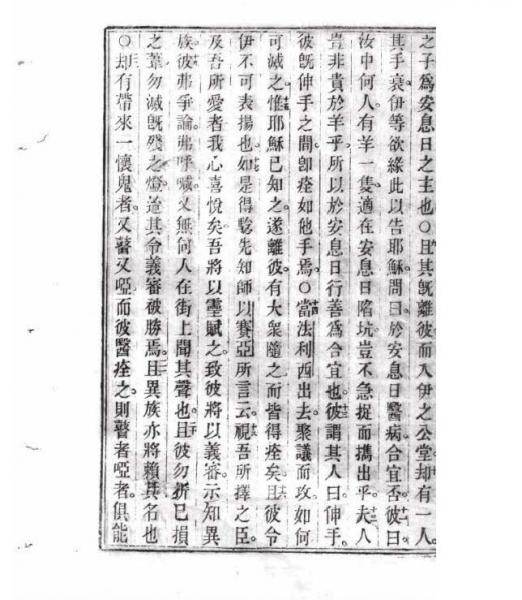 之子爲安息日之主也○且其既離彼而入伊之公堂却有一人
其手衰伊等欲緣此以告耶穌問曰於安息日醫病合宜否彼曰
汝中何人有羊一隻適在安息日陷坑豈不急捉而擕出乎夫人
豈非貴於羊乎所以於安息日行善爲合宜也彼謂其人曰伸手
彼既伸手之間卽痊如他手焉○當法利西出去聚議而攻如何
可滅之惟耶穌已知之遂離彼有大衆隨之而皆得痊矣且彼令
伊不可表揚也如是得騐先知師以賽亞所言云視吾所擇之臣
及吾所愛者我心喜悅矣吾將以靈賦之致彼將以義審示知異
族彼弗爭論弗呼喊又無何人在街上聞其聲也且彼勿折已損
之葦勿滅既殘之燈迨其令義審被勝焉且異族亦將賴其名也
○却有帶來一懷鬼者又瞽又啞而彼醫痊之則瞽者啞者俱能